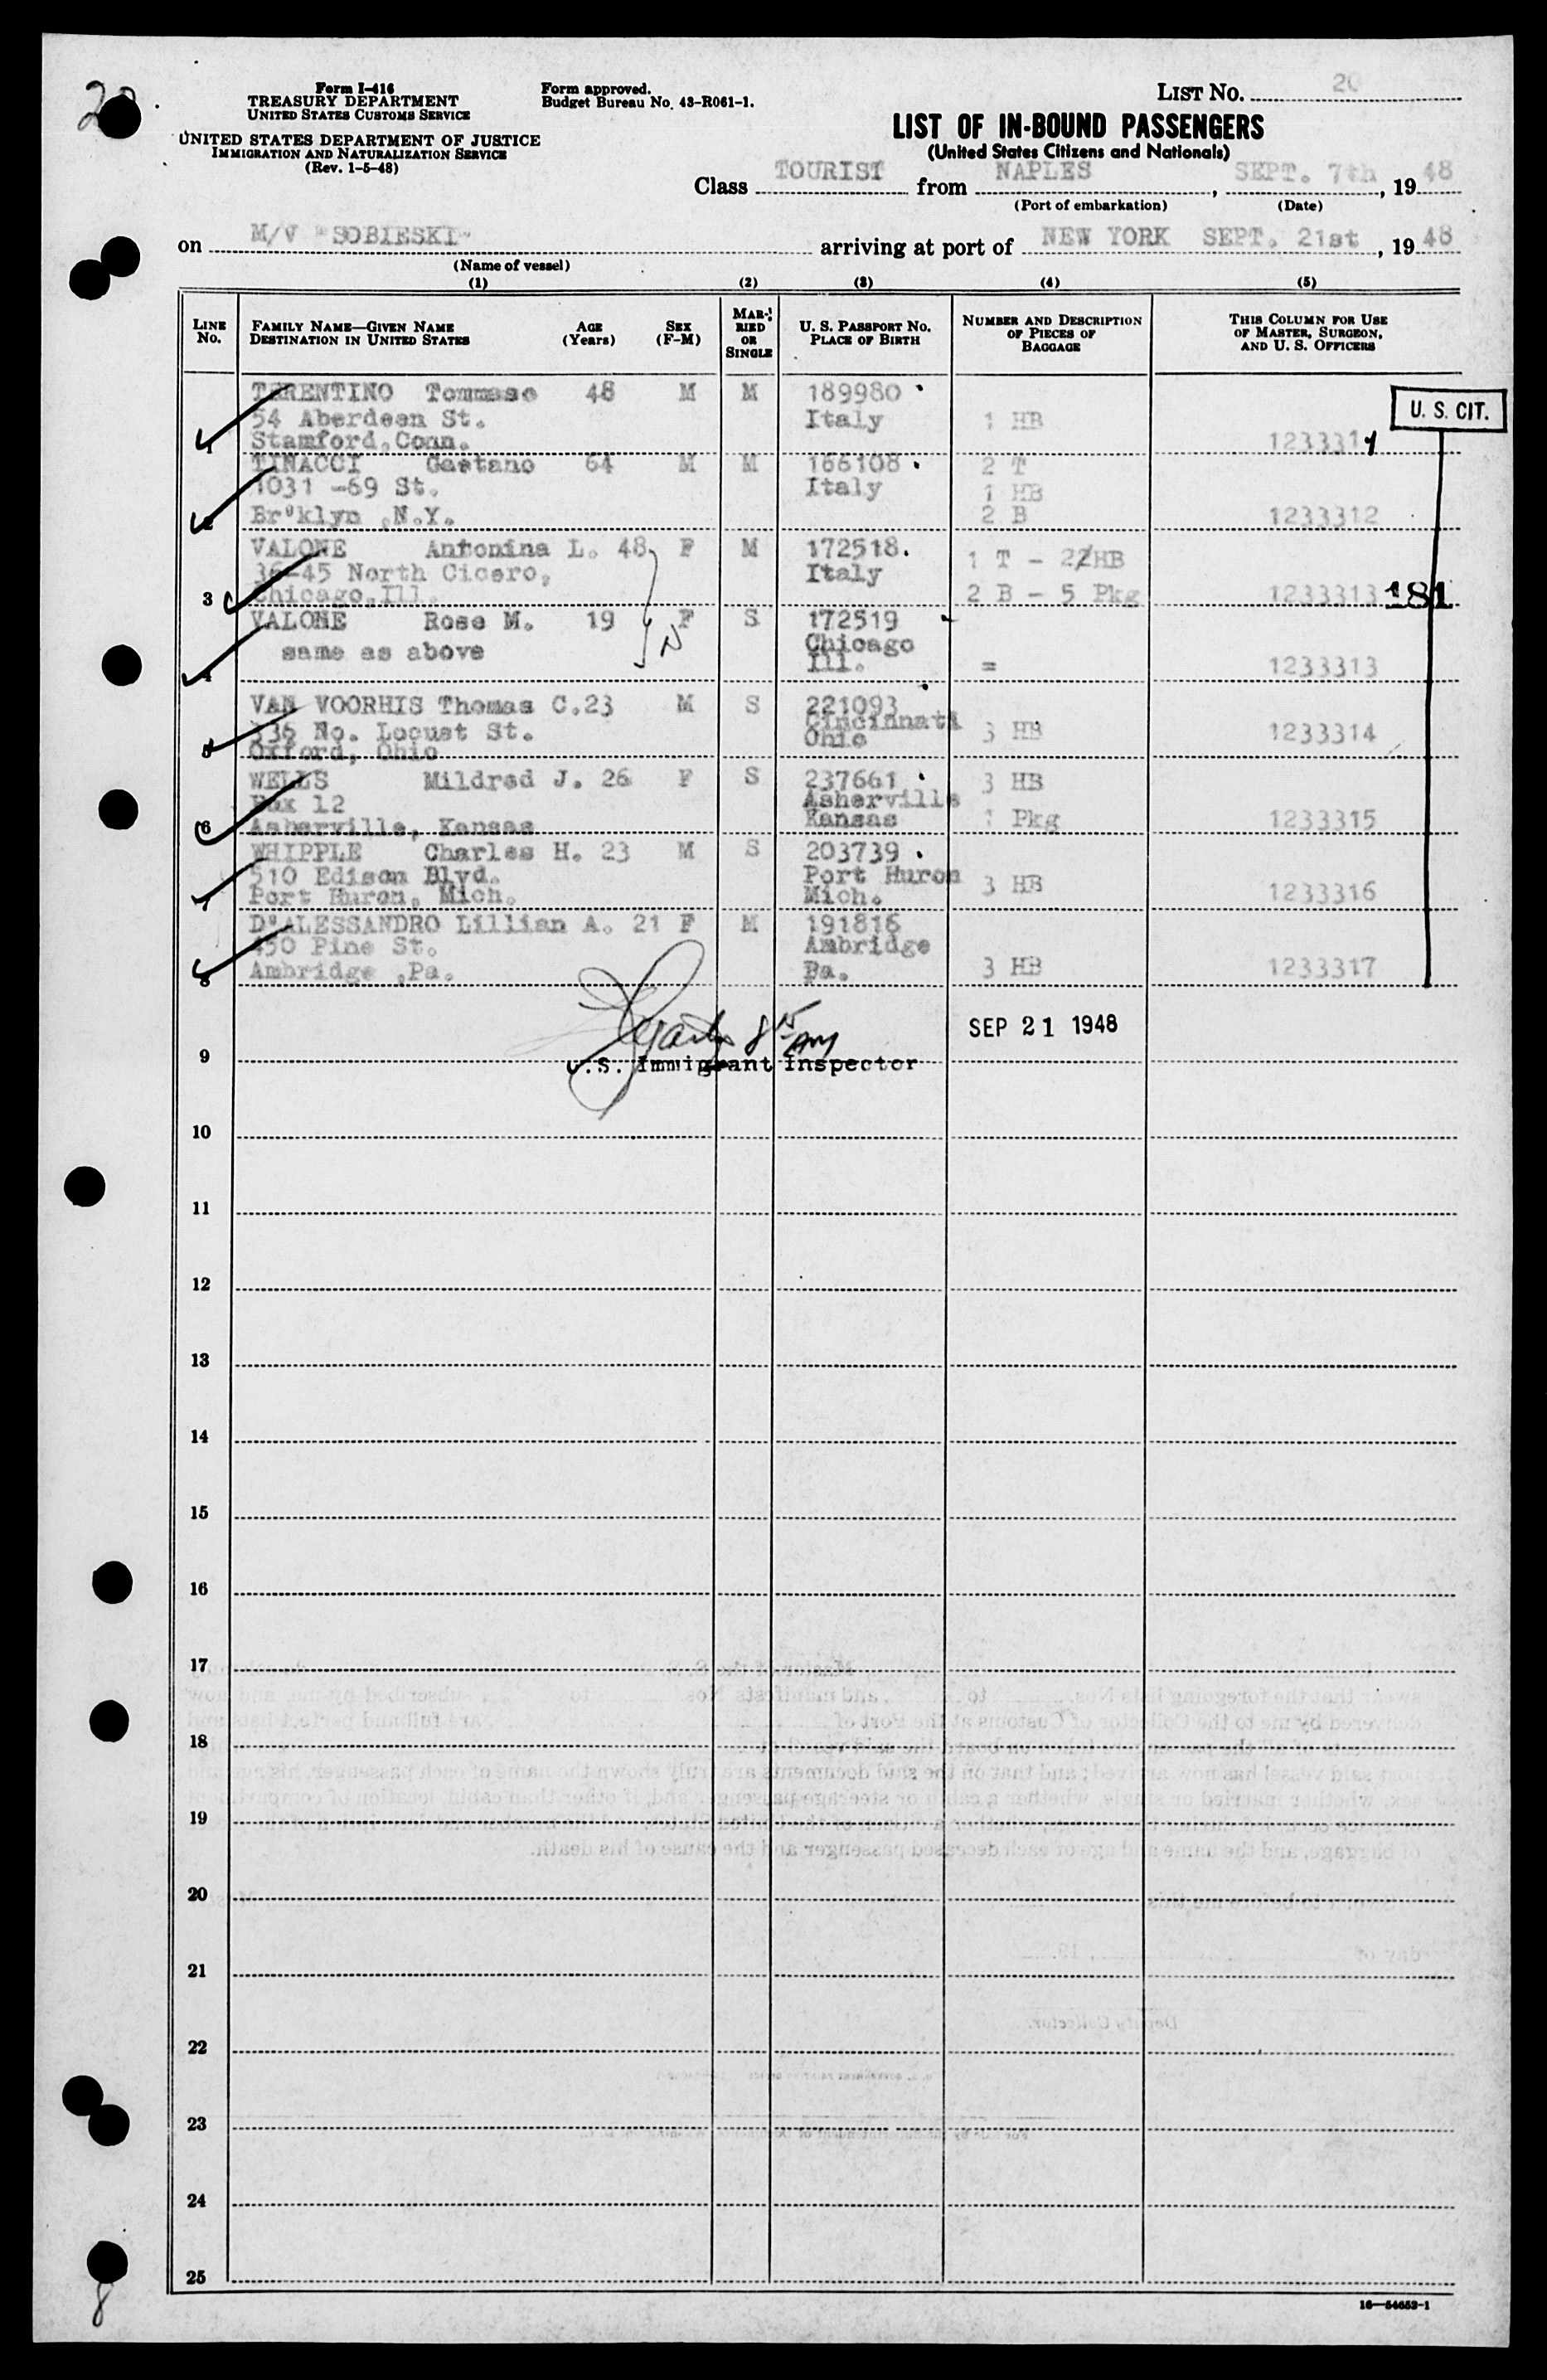 20
Form I-416
TREASURY DEPARTMENT
UNITED STATES CUSTOMS SERVICE
UNITED STATES DEPARTMENT OF JUSTICE
IMMIGRATION AND NATURALIZATION SERVICE
(Rev. 1-5-48)
Form approved.
Budget Bureau No. 43-R061-1.
LIST NO. 20
LIST OF IN-BOUND PASSENGERS
(United States Citizens and Nationals)
Class TOURIST from NAPLES, SEPT. 7th, 19 48
(Port of embarkation) (Date)
on M/V "SOBIESKI" arriving at port of NEW YORK SEPT. 21st, 19 48
(Name of vessel)
(1) (2) (3) (4) (5)
LINE No.
FAMILY NAME—GIVEN NAME
DESTINATION IN UNITED STATES
AGE (Years)
SEX (F-M)
MARRIED OR SINGLE
U. S. PASSPORT NO.
PLACE OF BIRTH
NUMBER AND DESCRIPTION OF PIECES OF BAGGAGE
THIS COLUMN FOR USE OF MASTER, SURGEON, AND U. S. OFFICERS
U. S. CIT.
TERENTINO Tommaso 48 M M 189980
54 Aberdeen St. Italy 1 HB
1 Stamford, Conn. 1233311
TINACCI Gaetano 64 M M 166108 2 T
1031 -69 St. Italy 1 HB
2 Br'klyn ,N.Y. 2 B 1233312
VALONE Antonina L. 48 F M 172518. 1 T - 2 HB
36-45 North Cicero, Italy
3 Chicago,Ill. 2 B - 5 Pkg 1233313 181
VALONE Rose M. 19 F S 172519
same as above Chicago
4 Ill. = 1233313
VAN VOORHIS Thomas C.23 M S 221093
336 No. Locust St. Cincinnati 3 HB 1233314
5 Oxford, Ohio Ohio
WELLS Mildred J. 26 F S 237661 3 HB
Box 12 Asherville
6 Asherville, Kansas Kansas 1 Pkg 1233315
WHIPPLE Charles H. 23 M S 203739
510 Edison Blvd. Port Huron 3 HB
7 Port Huron, Mich. Mich. 1233316
D'ALESSANDRO Lillian A. 21 F M 191816
450 Pine St. Ambridge
8 Ambridge ,Pa. Pa. 3 HB 1233317
SEP 21 1948
9 U.S. Immigrant Inspector
10
11
12
13
14
15
16
17
18
19
20
21
22
23
24
25
16—54653-1
8